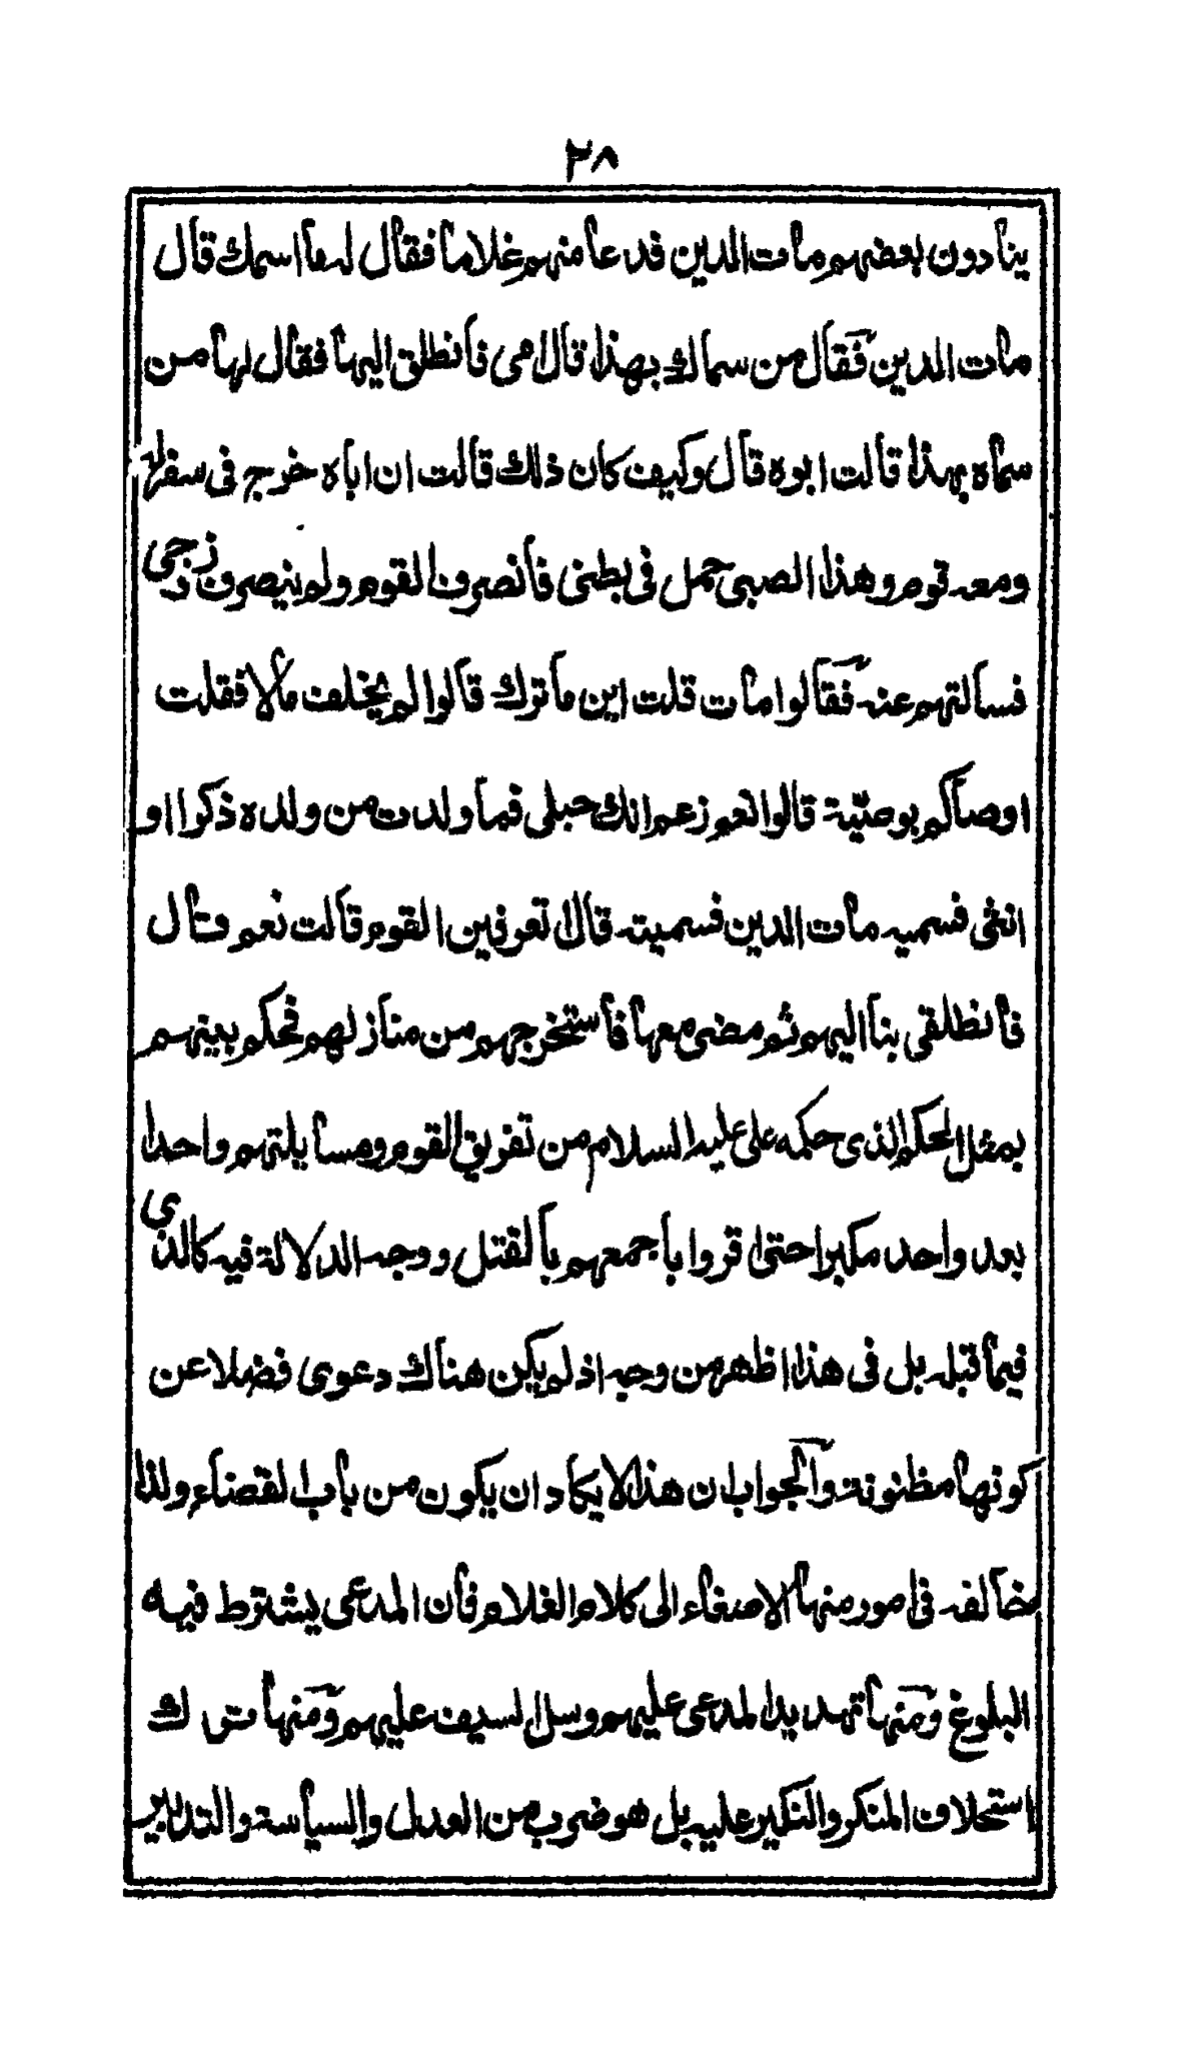 ٢٨
ينادون بعضهم مات الدين فدعا منهم غلاما فقال له ما اسمك قال
مات الدين فقال من سماك بهذا قال امى فانطلق اليها فقال لها من
سماه بهذا قالت ابوه قال وكيف كان ذلك قالت ان اباه خرج فى سفر له
ومعه قوم وهذا الصبى حمل فى بطنى فانصرف القوم ولم ينصرف زوجى
فسالتهم عنه فقالوا مات قلت اين ما ترك قالوا لم يخلف مالا فقلت
اوصاكم بوصيّة قالوا نعم زعم انك حبلى فما ولدت من ولده ذكرا او
انثى فسميه مات الدين فسميته قال تعرفين القوم قالت نعم قال
فانطلقى بنا اليهم ثم مضى معها فاستخرجهم من منازلهم فحكم بينهم
بمثل الحكم الذى حكمه على عليه السلام من تفريق القوم ومسايلتهم واحدا
بعد واحد مكبرا حتى اقروا باجمعهم بالقتل ووجه الدلالة فيه كالذى
فيما قبله بل فى هذا اظهر من وجه اذ لم يكن هناك دعوى فضلا عن
كونها مظنونة والجواب ان هذا لا يكاد ان يكون من باب القضاء ولذا
خالفه فى امور منها الاصغاء الى كلام الغلام فان المدعى يشترط فيه
البلوغ ومنها تهديد المدعى عليهم وسل السيف عليهم ومنها ترك
استحلاف المنكر والنكير عليه بل هو ضرب من العدل والسياسة والتدابير